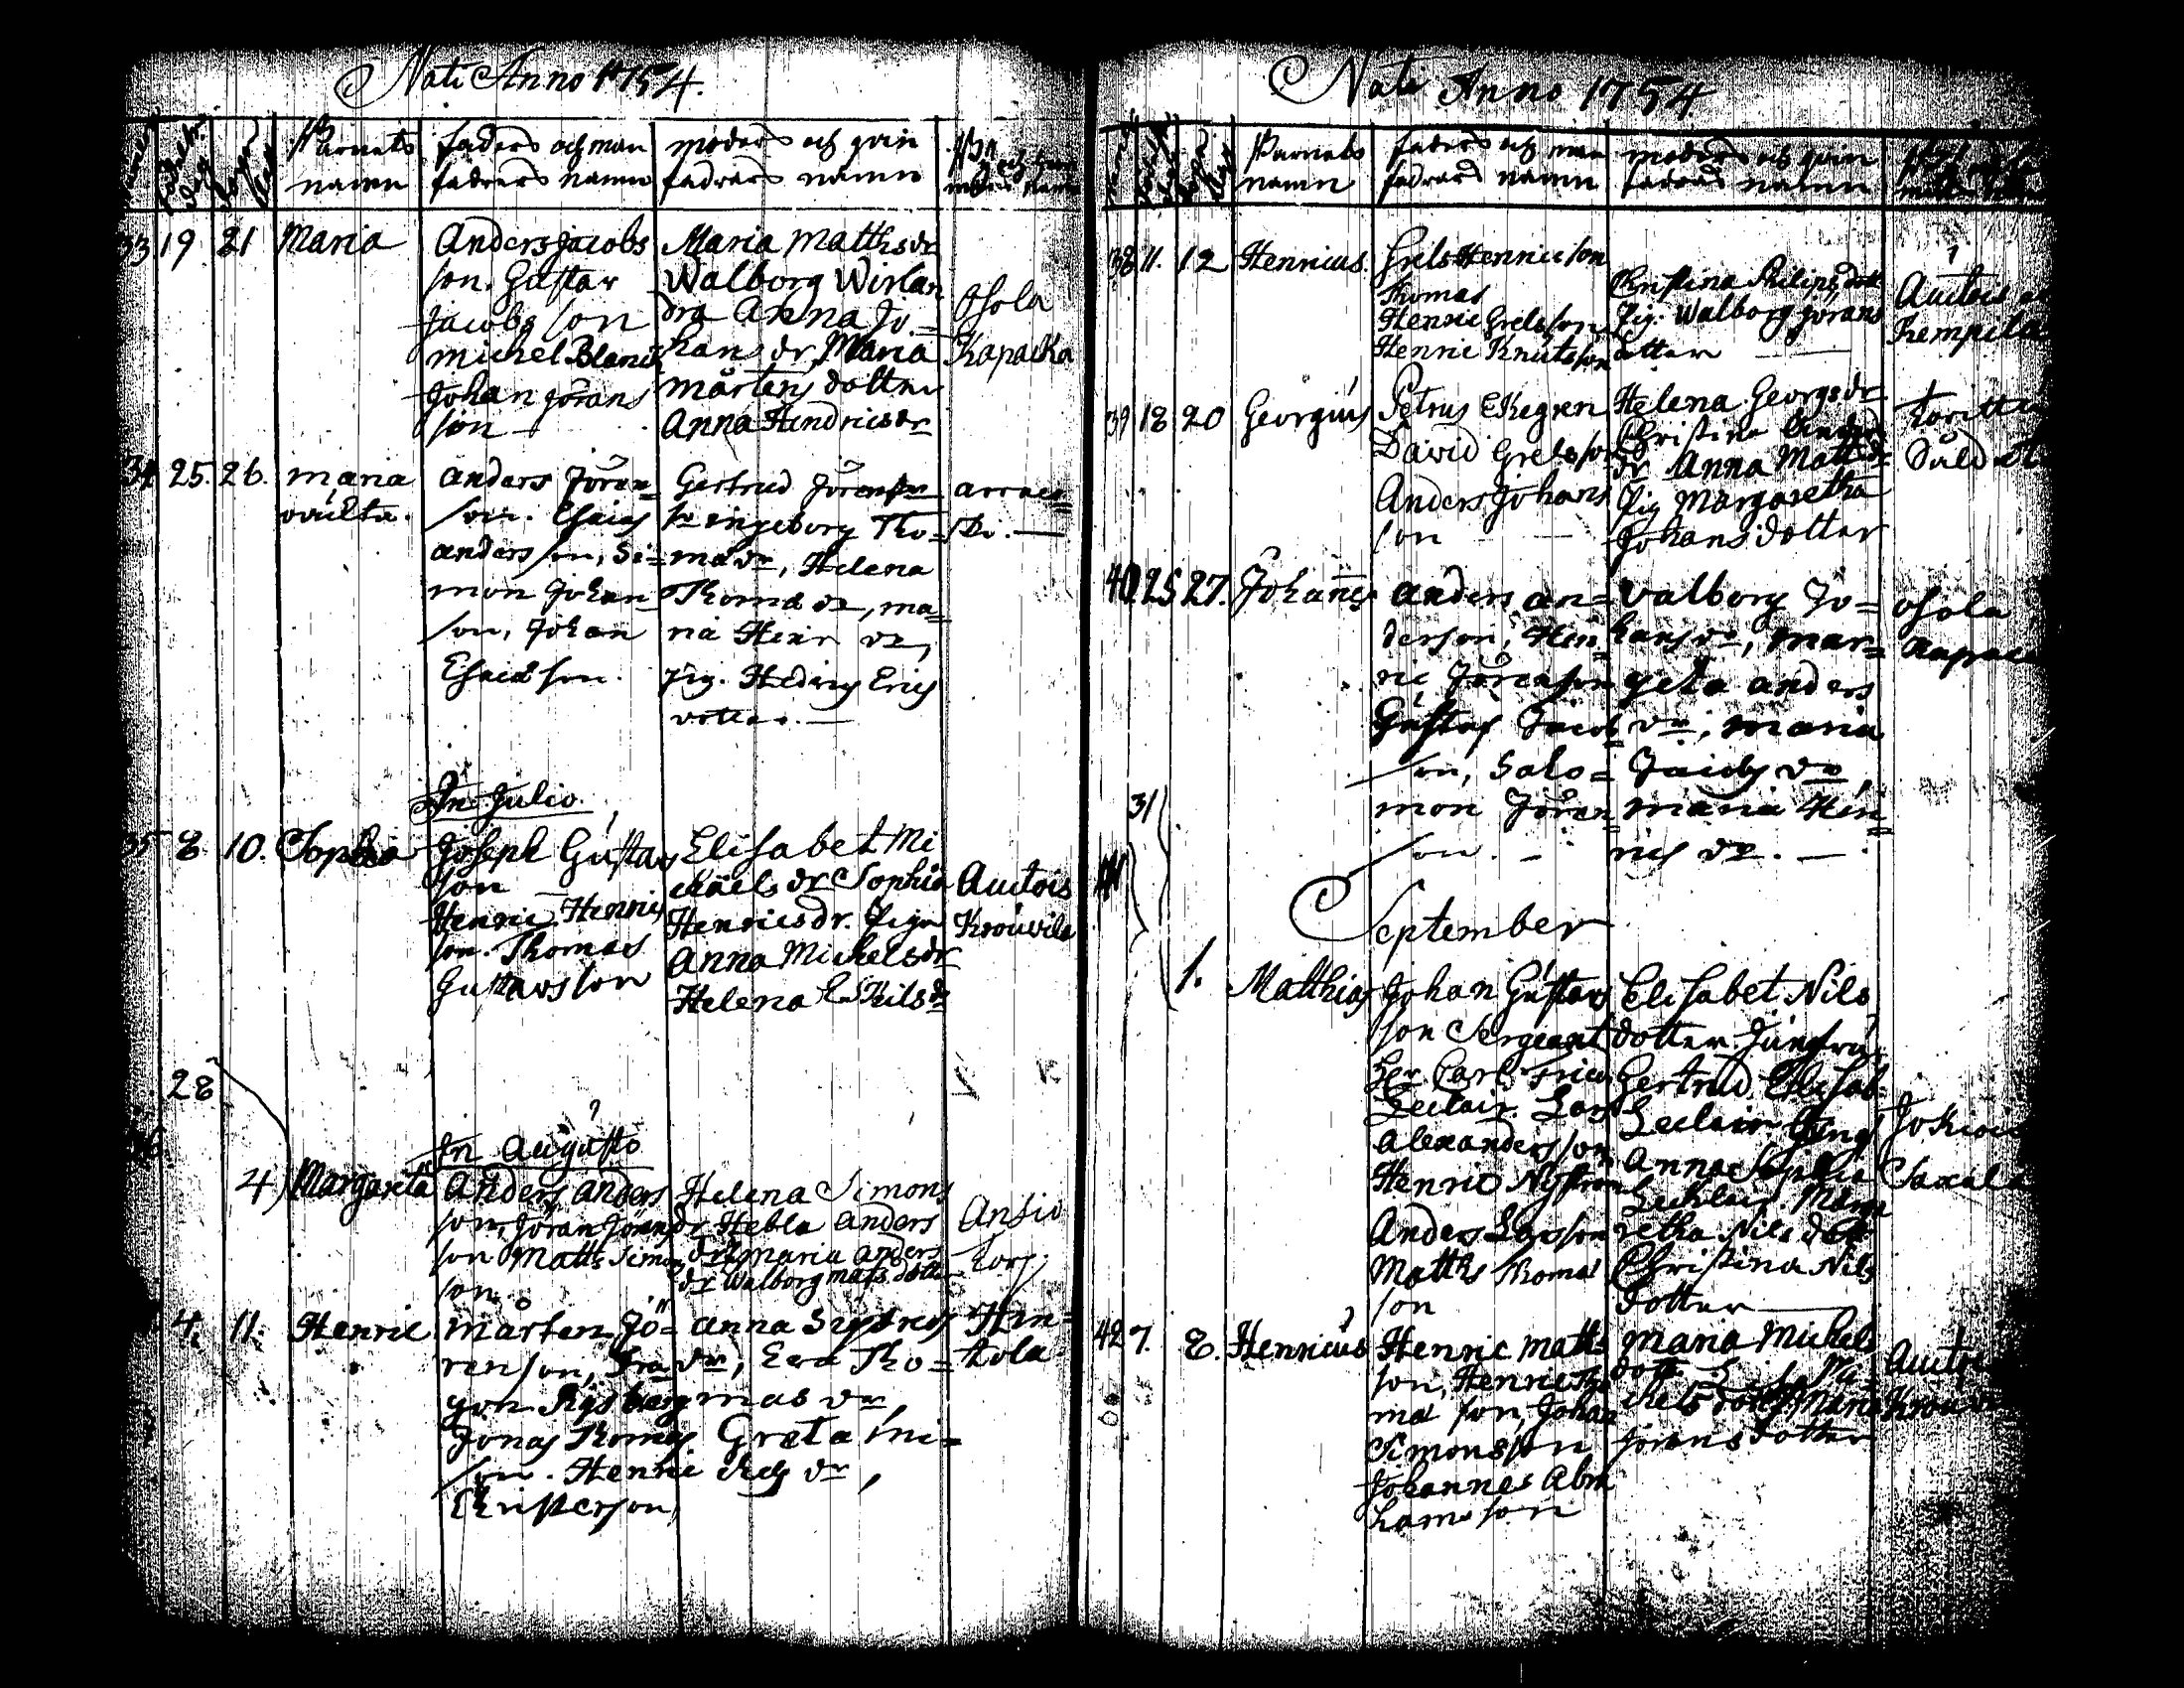 Nati Anno 1754.
Barnets namn
faders och man fadrars namn
moders och qvin fadrars namn
33 19 21 Maria
Anders Jacobs
son. Gustav
Jacobs son
Michel
Johan Jörans
son
Maria Matthsdr
Walborg Wirlan
dra Anna Jo=
hans dr Maria
mårtens dotter
Anna Hendricsdr
Osola
Kapacka
34 25. 26. maria
anders Jören=
son. Esaias
anders son, Si=
mon Johan
son, Johan
Esaias son.
Gertrud
Ingeborg Tho=
mædr, Helena
Thomæ dr, ma=
ria Henr dr,
Pig. Hedvig Erics
dotter.
In Julio.
35 8 10. Sophia
Joseph Gustavs
son
Henric Henrics
son. Thomas
Gustavs son
Elisabet Mi
chaels dr Sophia
Henricsdr. Pigan
Anna Michelsdr
Helena Eskilsdr
Auitois
Krouvila
28
In Augusto
4 Margareta
Anders Anders
son, Jöran Jörans
son Matts Simons
son
Helena Simons
dr Hebla Anders
dr Maria anders
dr Walborg Mats dotter
Ansio
torp
4. 11. Henric
Mårten Jö=
renson,
Jonas Thomas
son. Henric
Christerson,
Anna Sigfrids
dr, Eva Tho=
mas dr,
Greta Mi=
chels dr,
Hin=
tola
Nati Anno 1754
Barnets namn
faders och man fadrars namn
moders och qvin fadrars namn
38 11. 12 Henricus.
Grels Henricson
Thomas
Henric Grelsson
Henric Knutsson
Christina Philips dott
Pig. Walborg Jörans
dotter
Auitois
Kempila
39 18 20 Georgius
Petrus Ekegren
David Grelsson
Anders Johans
son
Helena Georgsdr
Christina Anders
dr Anna Mattsdr
Pig Margaretha
Johans dotter
40 25 27. Johannes
Anders an=
derson, Hen=
ric Jörenson
Gustaf Jacobs
son, Salo=
mon Jören=
son.
Valborg Jo=
hansdr, Mar=
geta anders
dr, maria
Jacobs dr
maria Hen=
rics dr.
Osola
31
September
1. Matthias
Johan Gustavs
son Sergeant
Herr Carl Fried
Leclair. Lars
Alexandersson
Henric Nyström
Anders Larsson
Matths Thomas
son
Elisabet Nils
dotter. Jungfru
Gertrud Elisab.
Leclair Jungf
Anna Sophia
Leclair. Marga
retha Nils dotter
Christina Nils
dotter
Jokiois
Saxala
42 7. 8. Henricus
Henric Matts
son, Henric Tho
mæ son, Johan
Simonsson
Johannes Abra
hamsson
Maria Michels
dott. Lisa Mi
chels dott Maria
Jörans dotter